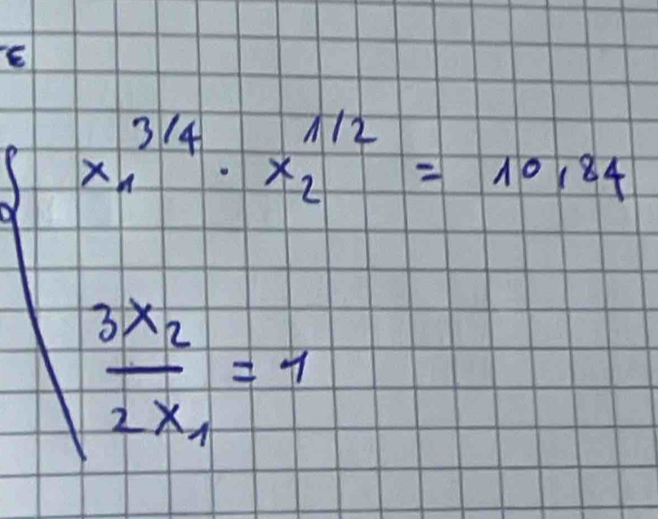 x₁^3/4 · x₂^1/2 = 10,84
3x₂/2x₁ = 1